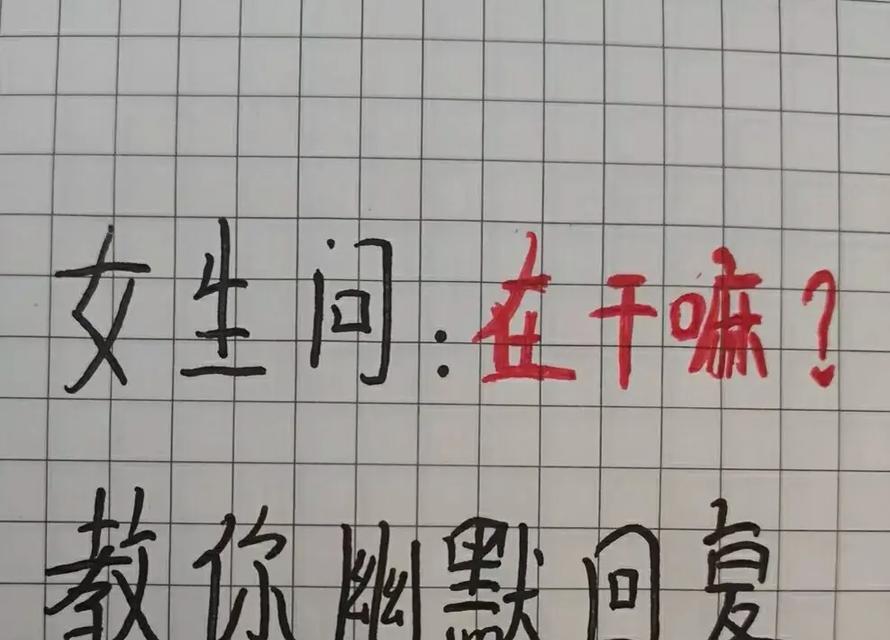 女生问:在干嘛?
教你幽默回复